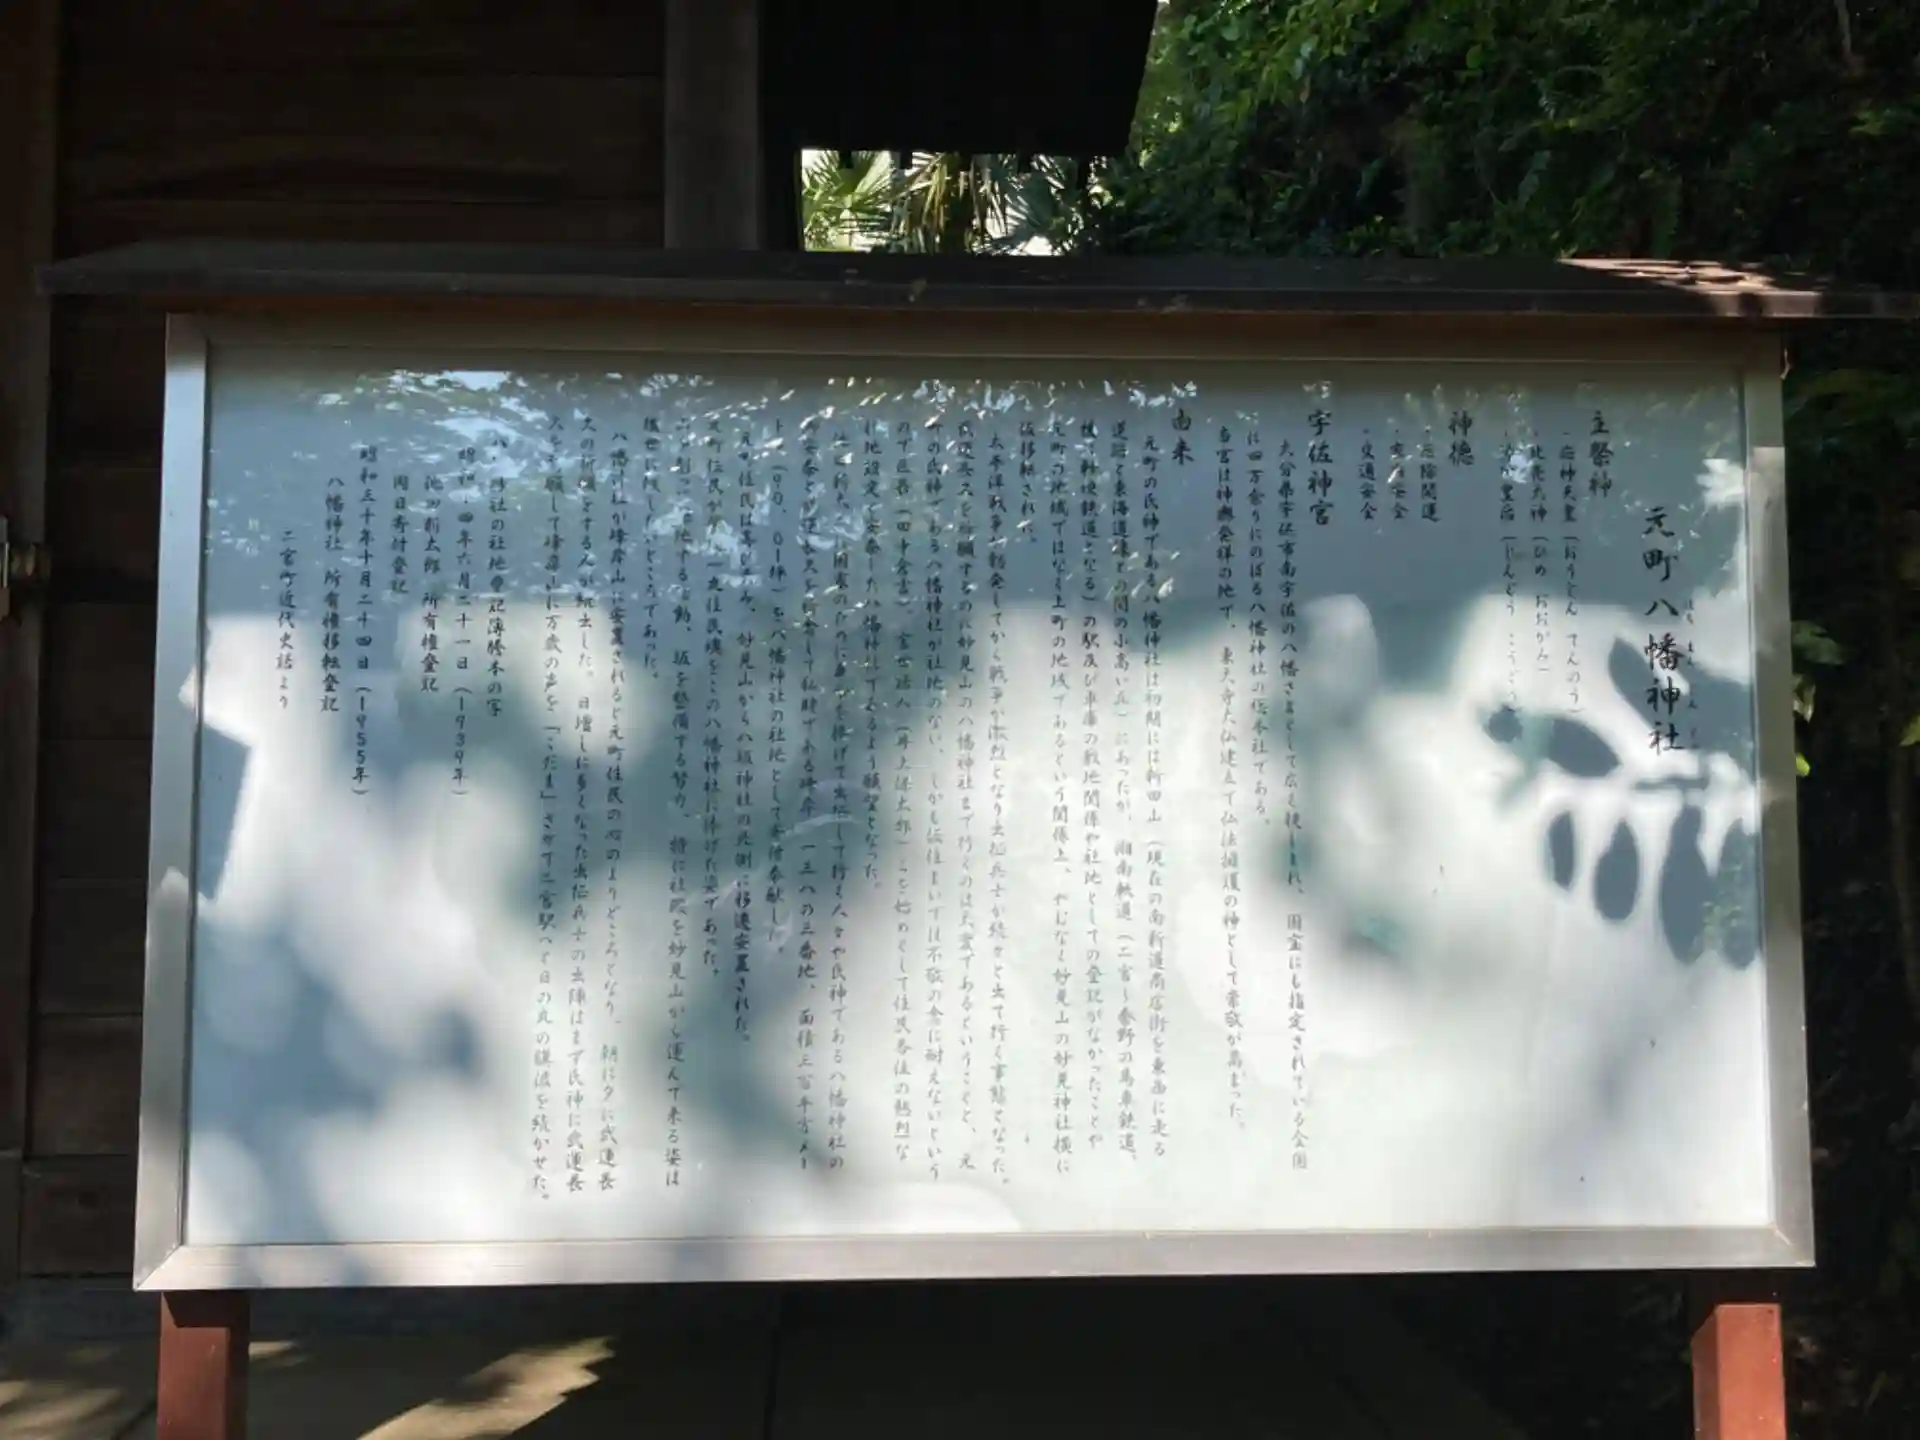 元町八幡神社
主祭神
・応神天皇（おうじん てんのう）
・比売大神（ひめ おおかみ）
皇后（じんぐう こうごう）
神徳
・厄除開運
安全
・交通安全
宇佐神宮
大分県宇佐市南宇佐の八幡さまとして広く親しまれ、国宝にも指定されている全国
に四万余りにのぼる八幡神社の総本社である。
当宮は神輿発祥の地で、東大寺大仏建立で仏法擁護の神として崇敬が高まった。
由来
元町の氏神である八幡神社は初期には新田山（現在の南新道商店街を東西に走る
道路と東海道線との間の小高い丘）にあったが、湘南軌道（二宮〜秦野の馬車鉄道、
後、軽便鉄道となる）の駅及び車庫の敷地関係や社地としての登記がなかったことや
元町の地域ではなく上町の地域であるという関係上、やむなく妙見山の妙見神社横に
仮移転された。
太平洋戦争が勃発してから戦争が激烈となり出征兵士が続々と出て行く事態となった。
武運長久を祈願するのに妙見山の八幡神社まで行くのは大変であるということと、元
町の氏神である八幡神社が社地のない、しかも仮住まいでは不敬の念に耐えないという
ので区長（田中倉吉）、宮世話人（井上保太郎）らを始めとして住民各位の熱烈な
社地設定で安泰した八幡神社であるよう願望となった。
国家のために身命を捧げて出征して行く人々や氏神である八幡神社の
安泰と武運長久を祈念して私財である峰岸一三八の三番地、面積三百平方メー
トル（９０．０１坪）を八幡神社の社地として寄付奉献した。
元町住民は喜び勇み、妙見山から八坂神社の北側に移遷安置された。
元町住民が一丸住民魂をこの八幡神社に捧げた姿であった。
山を割って土地する労働、坂を整備する努力、特に社殿を妙見山から運んで来る姿は
後世に残したいところであった。
八幡神社が峰岸山に安置されると元町住民の心のよりどころとなり、朝に夕に武運長
久の祈願をする人が続出した。日増しに多くなった出征兵士の出陣はまず氏神に武運長
久を祈願して峰岸山に万歳の声を「こだま」させて二宮駅へと日の丸の旗波を続かせた。
八幡神社の社地登記簿謄本の写
昭和十四年六月二十一日（１９３９年）
池田新太郎 所有権登記
同日寄付登記
昭和三十年十月二十四日（１９５５年）
八幡神社 所有権移転登記
二宮町近代史話より